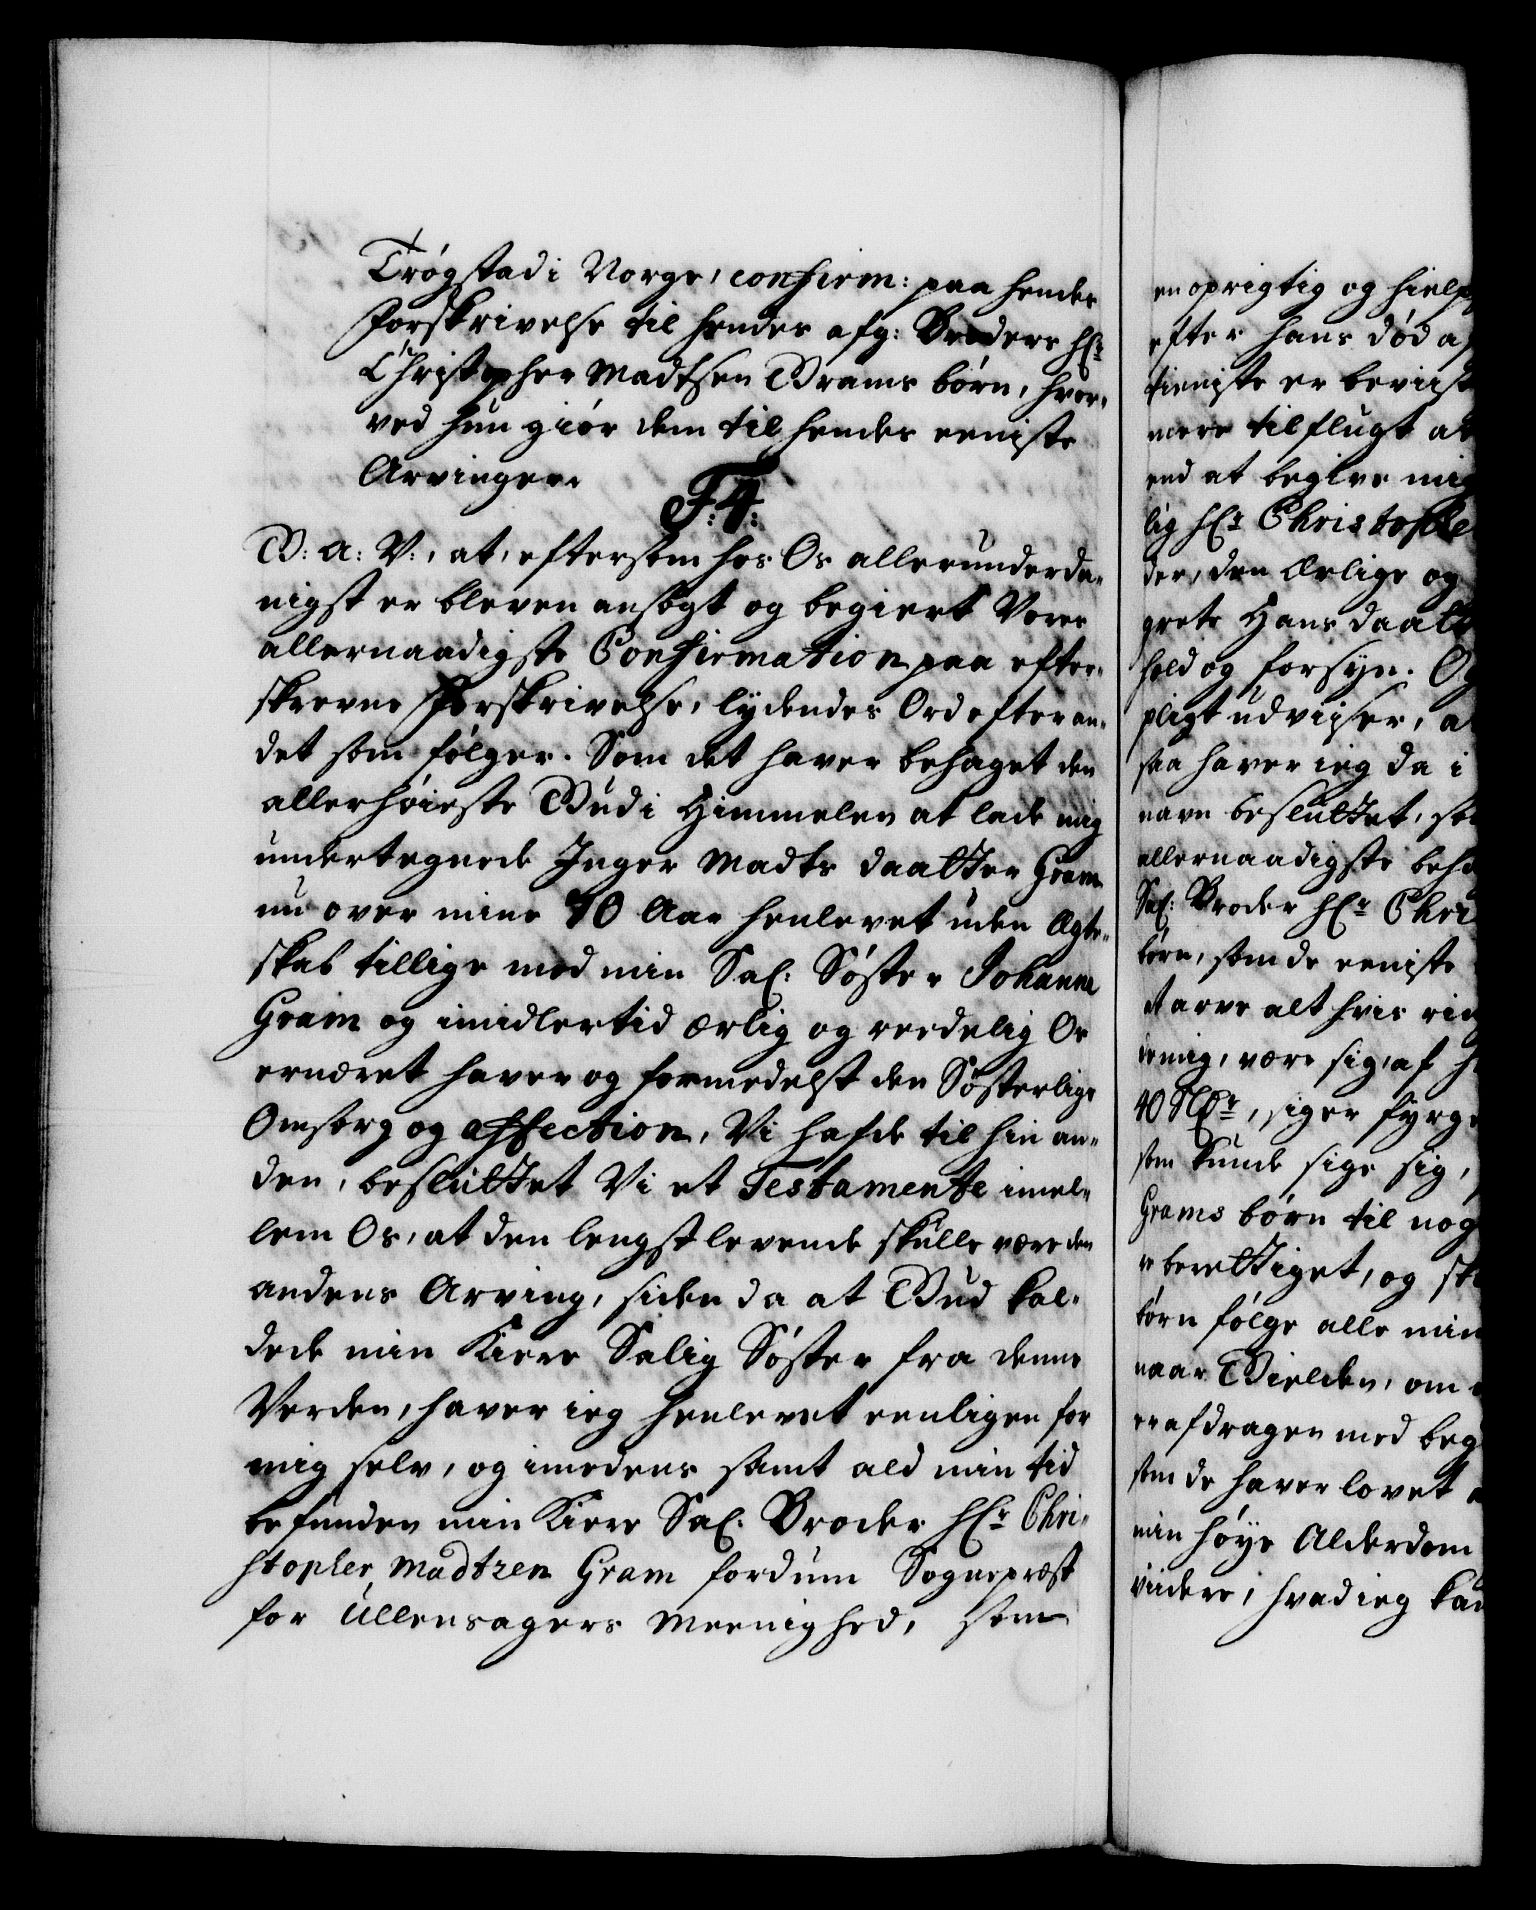 Trøgstad i Norge, confirm: paa hendes
Forskrivelse til hendes afg: Broders Hr
Christopher Madtsen Grams børn, hvor,
ved hun giør dem til hendes eeniste
Arvinger.
F: 4:
G: A: V:, at, eftersom hos Os allerunderda,
nigst er bleven ansøgt og begiert Vores
allernaadigste Confirmation paa efter,
skrevne Forskrivelse, lydendes Ord efter an,
det som følger. Som det haver behaget den
allerhøieste Gud i Himmelen at lade mig
undertegnede Inger Madts daatter Gram
nu over mine 70 Aar henlevet uden Ægte,
skab tillige med min Sal: Søster Johanne
Gram og imidlertid ærlig og reedelig Os
ernæret haver og formedelst den Søsterlige
Omsorg og affection, Vi hafde til hin an,
den, besluttet Vi et Testamente imel,
lem Os, at den lengstlevende skulle være den
andens Arving, siden da at Gud kal,
dede min Kiere Salig Søster fra denne
Verden, haver ieg henlevet eenligen for
mig selv, og imedens samt ald min tid
befunden min Kiere Sal: Broder Hr Chri,
stopher Madtzen Gram fordum Sognepræst
for Ullensagers Meenighed, som
en oprigtig og hielp
efter hans død a
tieniste er beviist
mere tilflugt at
end at begive mig
lig Hr Christophe
der, den Ærlige og
grete Hans daatt
hold og forsyn. Og
pligt udviser, a
saa haver ieg da i
navn besluttet, so
allernaadigste beha
Sal: Broder Hr Chri
børn, som de eeniste
at arve alt hvis rin
mig, være sig, af
40 Rdr, siger fyrge
som kunde sige sig,
Grams børn til nog
berettiget, og sk
børn følge alle min
naar Gielden, om
er afdragen med beg
som de haver lovet
min høye Alderdom
viidere, hvad ieg kan